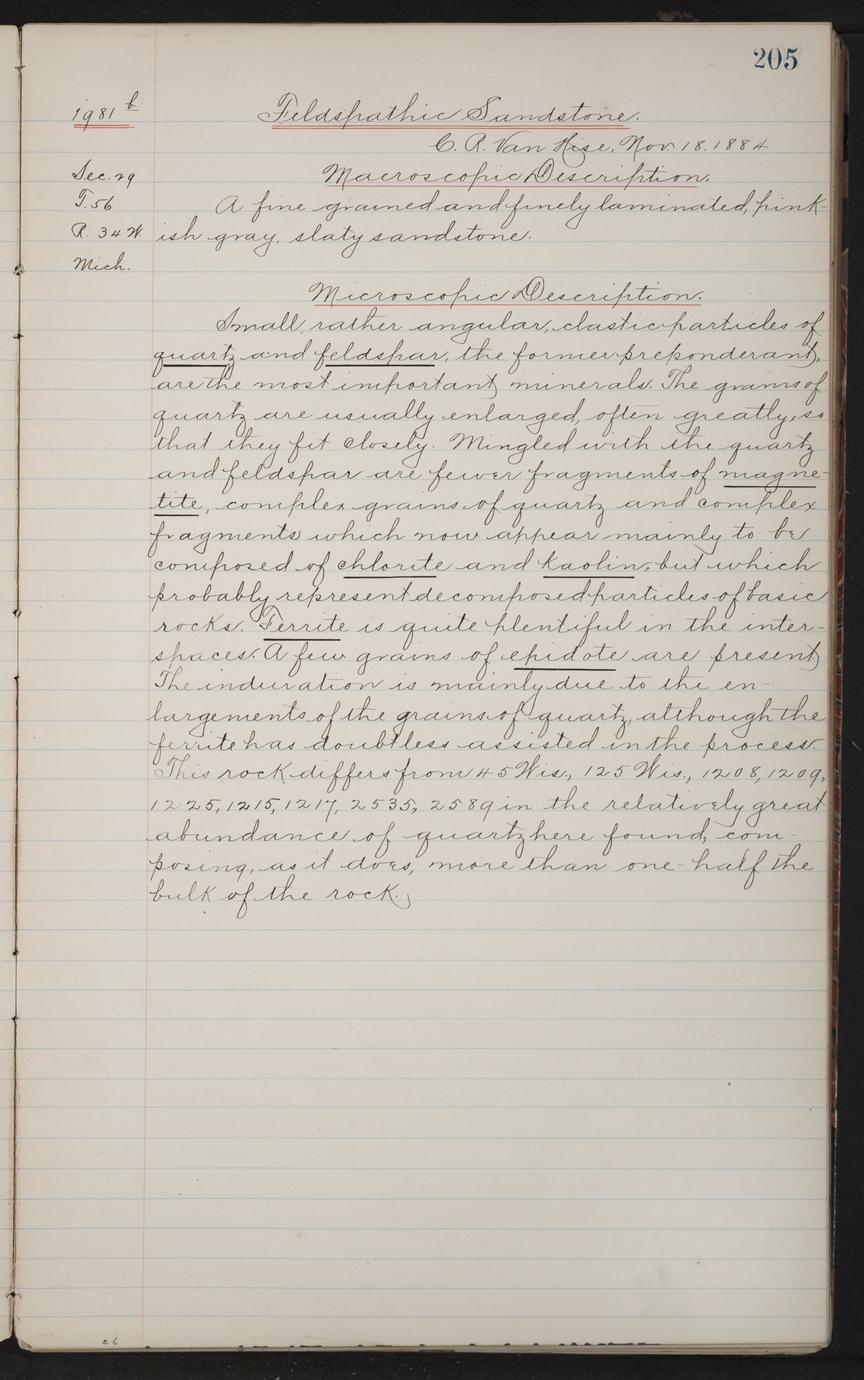 205
1981 b
Feldspathic Sandstone.
C. R. Van Hise, Nov. 18. 1884
Sec. 29
Macroscopic Description.
T. 56
A fine grained and finely laminated, pink-
R. 34 W.
ish gray, slaty sandstone.
Mich.
Microscopic Description.
Small, rather angular, clastic particles of
quartz and feldspar, the former preponderant,
are the most important minerals. The grains of
quartz are usually enlarged, often greatly, so
that they fit closely. Mingled with the quartz
and feldspar are fewer fragments of magne-
tite, complex grains of quartz and complex
fragments which now appear mainly to be
composed of chlorite and kaolin, but which
probably represent decomposed particles of basic
rocks. Ferrite is quite plentiful in the inter-
spaces. A few grains of epidote are present
The induration is mainly due to the en-
largements of the grains of quartz, although the
ferrite has doubtless assisted in the process.
This rock differs from 45 Wis., 125 Wis., 1208, 1209,
1225, 1215, 1217, 2535, 2589 in the relatively great
abundance of quartz here found, com-
posing, as it does, more than one-half the
bulk of the rock.
26